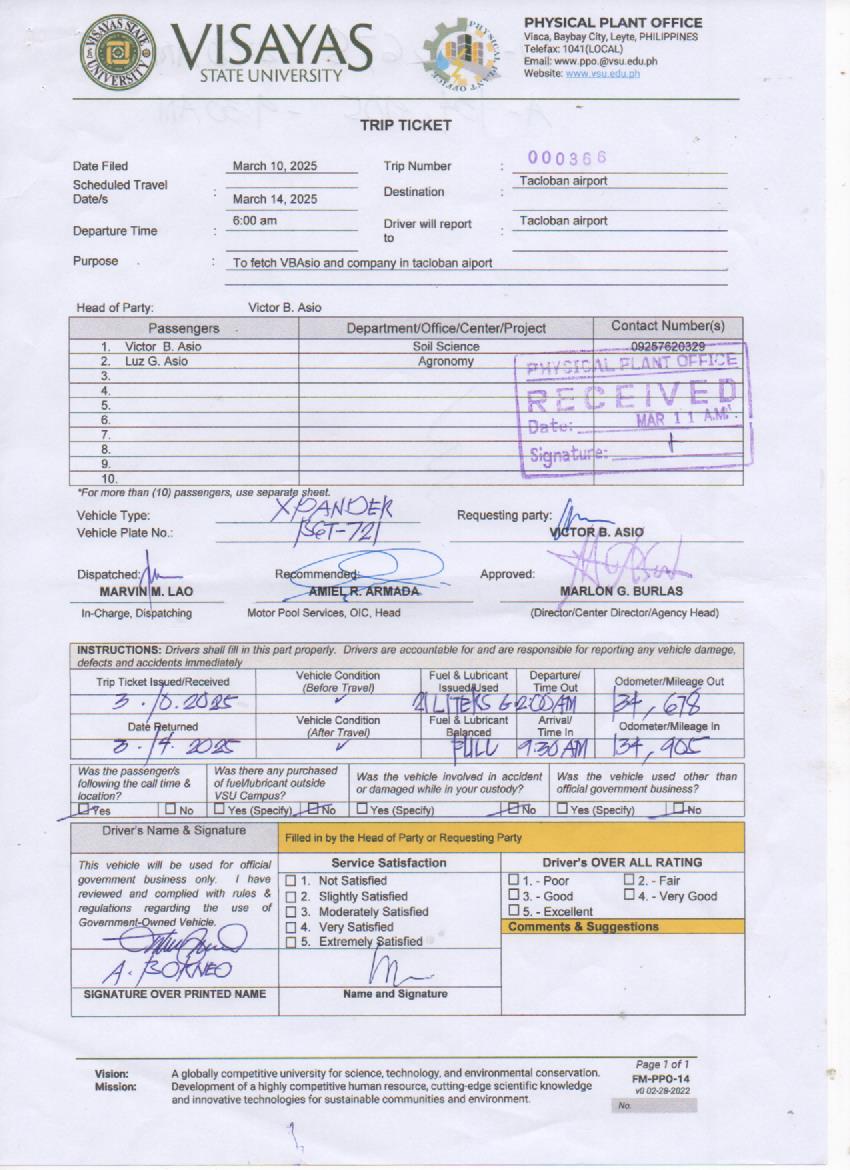 VISAYAS
STATE UNIVERSITY
PHYSICAL PLANT OFFICE
Visca, Baybay City, Leyte, PHILIPPINES
Telefax: 1041(LOCAL)
Email: www.ppo.@vsu.edu.ph
Website: www.vsu.edu.ph
TRIP TICKET
Date Filed March 10, 2025 Trip Number : 000366
Scheduled Travel Date/s : March 14, 2025 Destination : Tacloban airport
Departure Time : 6:00 am Driver will report to : Tacloban airport
Purpose : To fetch VBAsio and company in tacloban aiport
Head of Party: Victor B. Asio
Passengers Department/Office/Center/Project Contact Number(s)
1. Victor B. Asio Soil Science 09257620329
2. Luz G. Asio Agronomy
3.
4.
5.
6.
7.
8.
9.
10.
PHYSICAL PLANT OFFICE
RECEIVED
Date: MAR 11 A.M.
Signature:
*For more than (10) passengers, use separate sheet.
Vehicle Type: XPANDER Requesting party:
Vehicle Plate No.: VICTOR B. ASIO
Dispatched: Recommended: Approved:
MARVIN M. LAO AMIEL R. ARMADA MARLON G. BURLAS
In-Charge, Dispatching Motor Pool Services, OIC, Head (Director/Center Director/Agency Head)
INSTRUCTIONS: Drivers shall fill in this part properly. Drivers are accountable for and are responsible for reporting any vehicle damage,
defects and accidents immediately
Trip Ticket Issued/Received Vehicle Condition (Before Travel) Fuel & Lubricant Issued/Used Departure/ Time Out Odometer/Mileage Out
3.10.2025 ✓ 21 LITERS 134,678
Date Returned Vehicle Condition (After Travel) Fuel & Lubricant Balanced Arrival/ Time In Odometer/Mileage In
3.14.2025 ✓ FULL 9:30 AM 134,905
Was the passenger/s following the call time & location? Was there any purchased of fuel/lubricant outside VSU Campus? Was the vehicle involved in accident or damaged while in your custody? Was the vehicle used other than official government business?
Yes No Yes (Specify) No Yes (Specify) No Yes (Specify) No
Driver's Name & Signature Filled in by the Head of Party or Requesting Party
This vehicle will be used for official
government business only. I have
reviewed and complied with rules &
regulations regarding the use of
Government-Owned Vehicle.
A. BORNEO
SIGNATURE OVER PRINTED NAME
Service Satisfaction
1. Not Satisfied
2. Slightly Satisfied
3. Moderately Satisfied
4. Very Satisfied
5. Extremely Satisfied
Name and Signature
Driver's OVER ALL RATING
1. - Poor 2. - Fair
3. - Good 4. - Very Good
5. - Excellent
Comments & Suggestions
Vision: A globally competitive university for science, technology, and environmental conservation.
Mission: Development of a highly competitive human resource, cutting-edge scientific knowledge
and innovative technologies for sustainable communities and environment.
Page 1 of 1
FM-PPO-14
v0 02-28-2022
No.